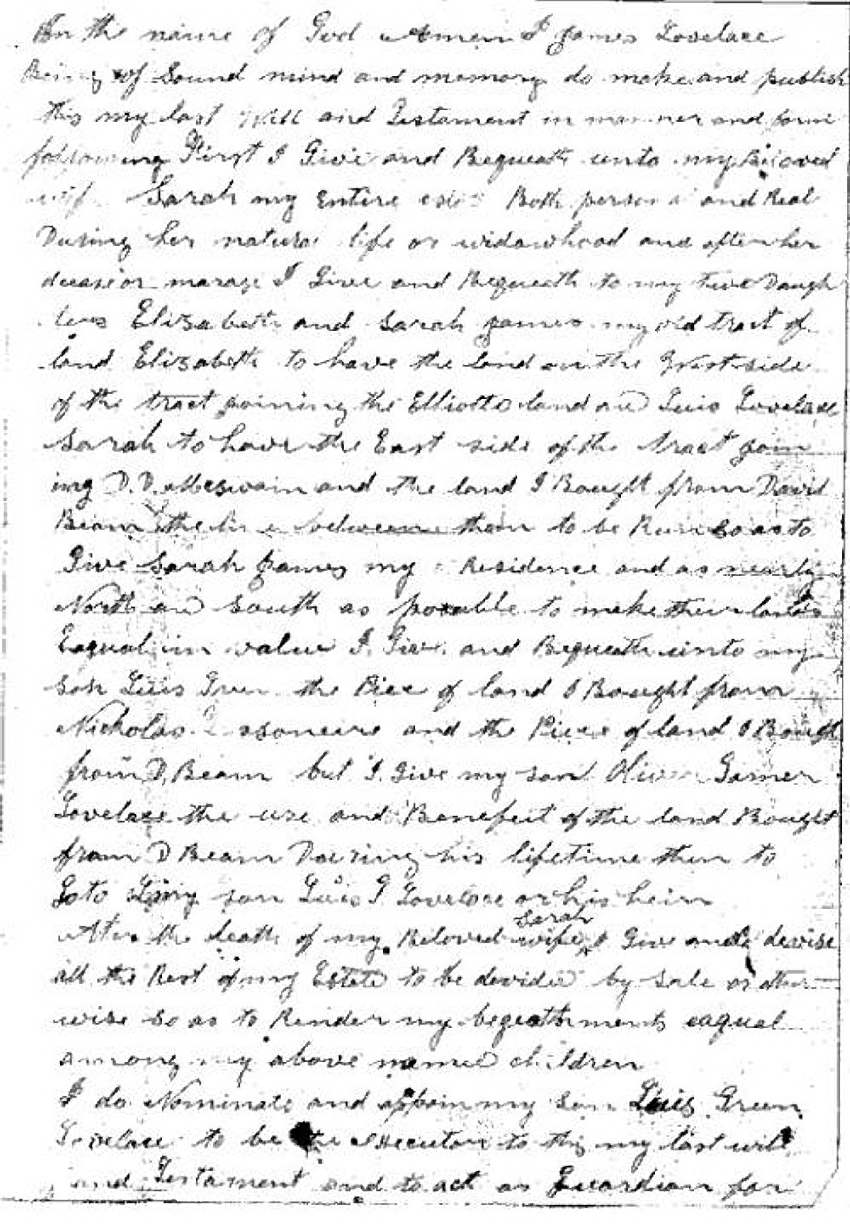 In the name of God Amen I James Lovelace
Being of Sound mind and memory do make and publish
this my last Will and Testament in manner and form
following First I Give and Bequeath unto my Beloved
wife Sarah my Entire Both personal and Real
During her natural life or widowhood and after her
decease or marage I Give and Bequeath to my two Daugh
ters Elizabeth and Sarah James my old tract of
land Elizabeth to have the land on the West side
of the tract joining the Elliotte land and Luis Lovelace
Sarah to have the East side of the tract join
ing D.D. McSwain and the land I Bought from David
Beam the line between them to be Run so as to
Give Sarah James my Residence and as nearly
North and South as posable to make their lands
Eaqual in value I Give and Bequeath unto my
Son Luis Green the Piece of land I Bought from
Nicholas and the Piece of land I Bought
from D. Beam but I Give my son Oliver Gamer
Lovelace the use and Benefeit of the land Bought
from D Beam Doering his lifetime then to
Go to my son Luis G Lovelace or his heirs
After the death of my Beloved wife Sarah I Give and devise
all the Rest of my Estate to be devided by Sale or other
wise so as to Render my beqeathments eaqual
among my above named children
I do Nominate and appoin my Son Luis Green
Lovelace to be the executor to this my last will
and Testament and to act as Guardian for